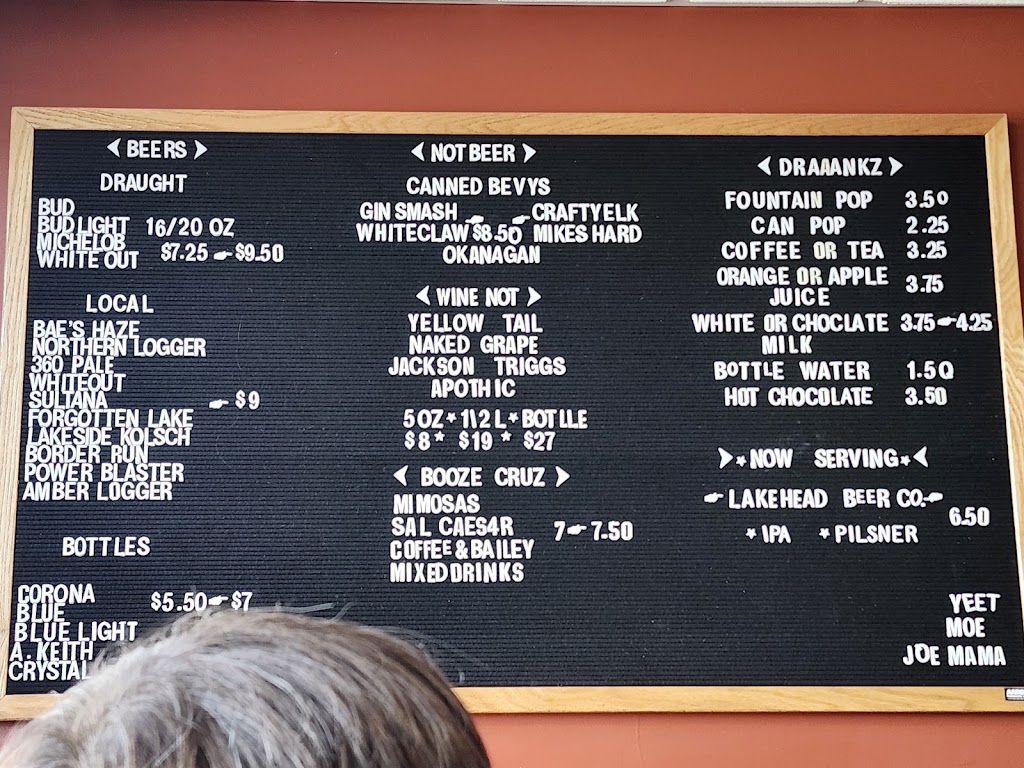 < BEERS >
DRAUGHT
BUD
BUD LIGHT 16/20 OZ
MICHELOB
WHITE OUT $7.25 ☛ $9.50
LOCAL
BAE'S HAZE
NORTHERN LOGGER
360 PALE
WHITEOUT
SULTANA ☛ $9
FORGOTTEN LAKE
LAKESIDE KOLSCH
BORDER RUN
POWER BLASTER
AMBER LOGGER
BOTTLES
CORONA $5.50 ☛ $7
BLUE
BLUE LIGHT
A. KEITH
CRYSTAL
< NOT BEER >
CANNED BEVYS
GIN SMASH ☛ ☛ CRAFTY ELK
WHITECLAW $8.50 MIKES HARD
OKANAGAN
< WINE NOT >
YELLOW TAIL
NAKED GRAPE
JACKSON TRIGGS
APOTHIC
5 OZ * 1\2 L * BOTLLE
$8 * $19 * $27
< BOOZE CRUZ >
MIMOSAS
SAL CAES4R 7 ☛ 7.50
COFFEE & BAILEY
MIXED DRINKS
< DRAAANKZ >
FOUNTAIN POP 3.50
CAN POP 2.25
COFFEE OR TEA 3.25
ORANGE OR APPLE
JUICE 3.75
WHITE OR CHOCLATE 3.75 ☛ 4.25
MILK
BOTTLE WATER 1.5Q
HOT CHOCOLATE 3.50
>*NOW SERVING*<
☛ LAKEHEAD BEER CO. ☛
6.50
*IPA *PILSNER
YEET
MOE
JOE MAMA